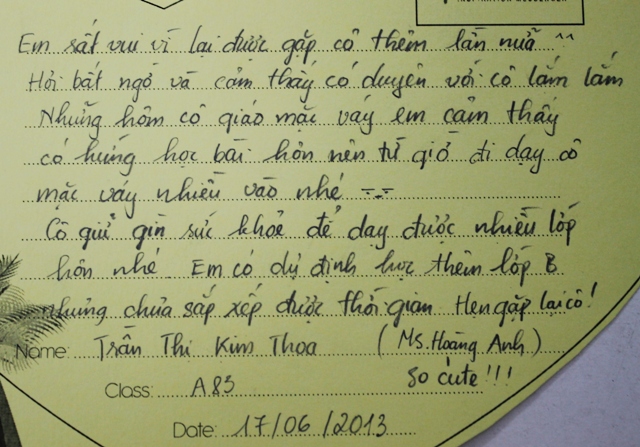 Em rất vui vì lại được gặp cô thêm lần nữa ^^
Hơi bất ngờ và cảm thấy có duyên với cô lắm lắm
Những hôm cô giáo mặc váy em cảm thấy
có hứng học bài hơn nên từ giờ đi dạy cô
mặc váy nhiều vào nhé -.-
Cô giữ gìn sức khoẻ để dạy được nhiều lớp
hơn nhé. Em có dự định học thêm lớp B
nhưng chưa sắp xếp được thời gian. Hẹn gặp lại cô!
Name: Trần Thị Kim Thoa (Ms. Hoàng Anh)
so cute!!!
Class: A83
Date: 17/06/2013